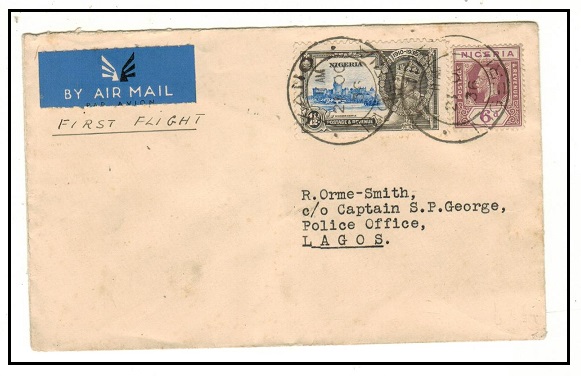 BY AIR MAIL
PAR AVION
FIRST FLIGHT
NIGERIA
1910-1935
POSTAGE & REVENUE
KANO
NIGERIA
POSTAGE
REVENUE
6d
R.Orme-Smith,
c/o Captain S.P.George,
Police Office,
LAGOS.